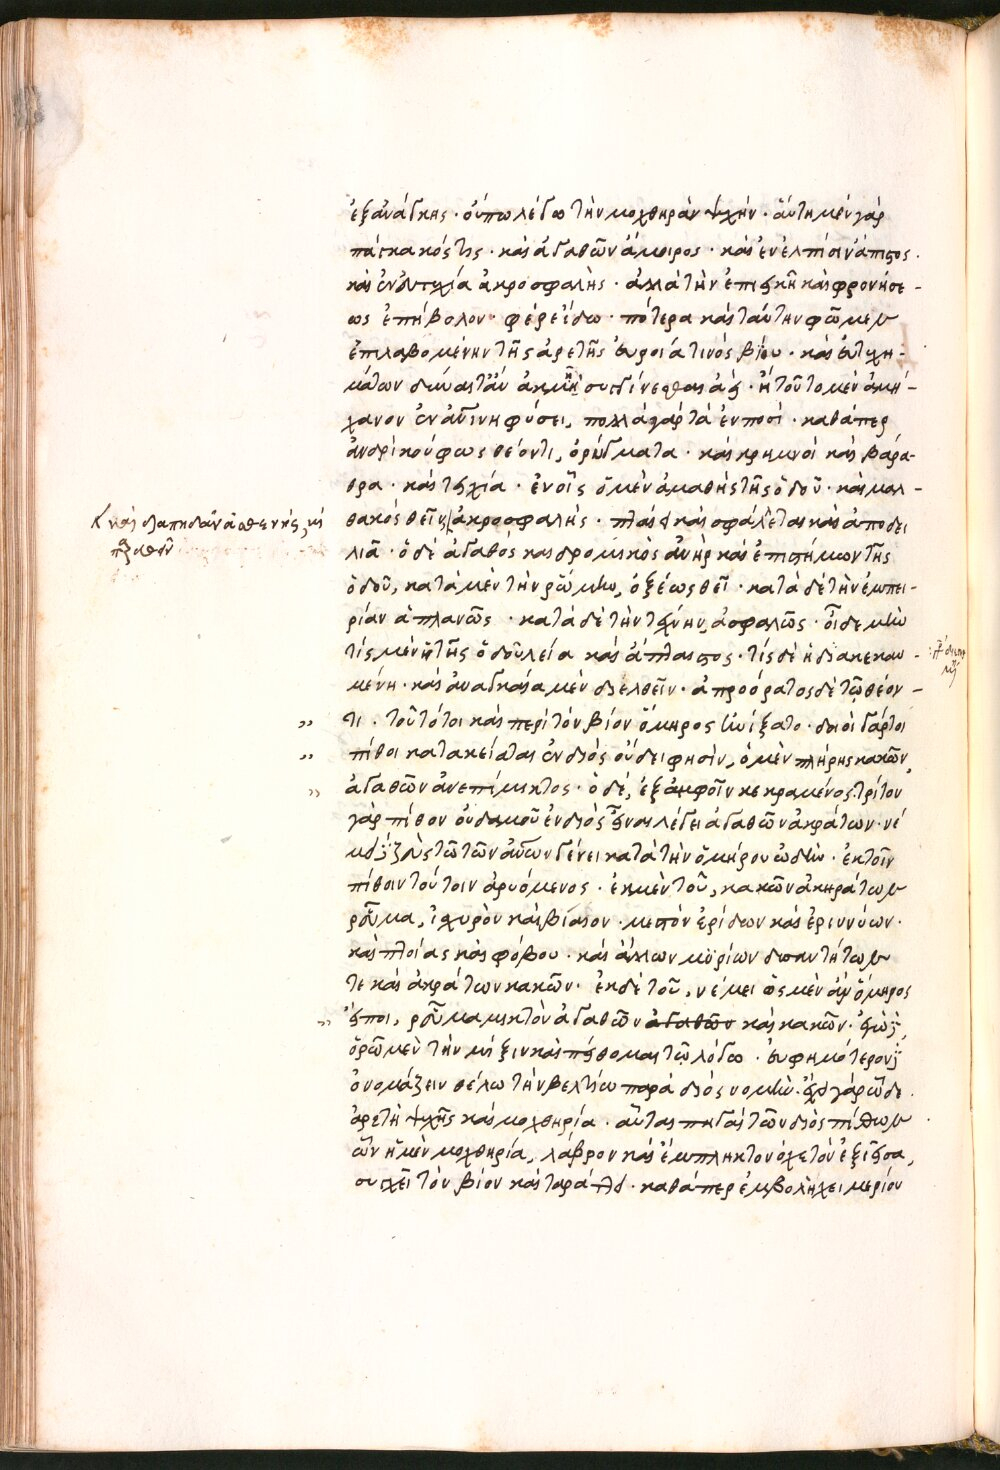 ἐξ ἀνάγκης · οὔπω λέγω τὴν μοχθηρὰν ψυχήν · αὕτη μὲν γὰρ
πάγκακός τις · καὶ ἀγαθῶν ἄμοιρος · καὶ ἐν ἐλπίσιν ἄπιστος ·
καὶ ἐν εὐτυχίᾳ ἀκροσφαλής · ἀλλὰ τὴν ἐπιεικῆ καὶ φρονήσε-
ως ἐπήβολον · φέρε ἴδω · πότερα καὶ ταύτην φῶμεν
ἐπιλαβομένην τῆς ἀρετῆς εὐροίᾳ τινὸς βίου · καὶ εὐτυχη-
μάτων δύνασθαι ἂν ἀκμῇ συγγίνεσθαι ἀεί · ἢ τοῦτο μὲν ἀμή-
χανον ἐν ἀνθρωπίνῃ φύσει, πολλὰ γὰρ τὰ ἐν ποσί · καθάπερ
ἀνδρὶ κούφως θέοντι, ὀρύγματα · καὶ κρημνοὶ καὶ βάρα-
θρα · καὶ τειχία · ἐν οἷς ὁ μὲν ἀμαθὴς τῆς ὁδοῦ · καὶ μαλ-
θακὸς θεῖν, ἀκροσφαλής · πταίει καὶ σφάλλεται καὶ ἀποδει
λιᾷ · ὁ δὲ ἀγαθὸς καὶ δρομικὸς ἀνὴρ καὶ ἐπιστήμων τῆς
ὁδοῦ, κατὰ μὲν τὴν ῥώμην, ὀξέως θεῖ · κατὰ δὲ τὴν ἐμπει-
ρίαν ἀπλανῶς · κατὰ δὲ τὴν τέχνην, ἀσφαλῶς · οἶδε μὴν
τίς μὲν ἡ τῆς ὁδοῦ λεία καὶ ἄπταιστος · τίς δὲ ἡ διακεκαυ-
μένη · καὶ ἀναγκαία μὲν διελθεῖν · ἀπροόρατος δὲ τῷ θέον-
τι · τοῦτό τοι καὶ περὶ τὸν βίον ὅμηρος ᾐνίξατο · δοιοὶ γάρ τοι
πίθοι κατακείαται ἐν διὸς οὔδει φησὶν, ὁ μὲν πλήρης κακῶν,
ἀγαθῶν ἀνεπίμικτος · ὁ δὲ, ἐξ ἀμφοῖν κεκραμένος · τρίτον
γὰρ πίθον οὐδαμοῦ ἐν διὸς εἶναι λέγει ἀγαθῶν ἀκράτων · νέ
μει δὲ ζεὺς τῷ τῶν ἀνθρώπων γένει κατὰ τὴν ὁμήρου ᾠδὴν · ἐκ τοῖν
πίθοιν τούτοιν ἀρυόμενος · ἐκ μὲν τοῦ, κακῶν ἀκηράτων
ῥεῦμα, ἰσχυρὸν καὶ βίαιον · μεστὸν ἐρίδων καὶ ἐριννύων ·
καὶ πτοίας καὶ φόβου · καὶ ἄλλων μυρίων δυσαντήτων
τε καὶ ἀκράτων κακῶν · ἐκ δὲ τοῦ, νέμει ὡς μὲν ἂν ὅμηρος
εἴποι, ῥεῦμα μικτὸν ἀγαθῶν ἀγαθῶν καὶ κακῶν · ἐγὼ δὲ,
ὁρῶ μὲν τὴν μῖξιν καὶ πείθομαι τῷ λόγῳ · εὐφημότερον δὲ
ὀνομάζειν θέλω τὴν βελτίω παρὰ διὸς νομὴν · ἔχει γὰρ ὧδε ·
ἀρετὴ ψυχῆς καὶ μοχθηρία · αὗται πηγαὶ τῶν διὸς πίθων
ὧν ἡ μὲν μοχθηρία, λάβρον καὶ ἔμπληκτον ὀχετὸν ἐξιεῖσα,
συγχεῖ τὸν βίον καὶ ταράττει · καθάπερ ἐμβολὴ χειμερίου
καὶ διαπηδᾶν ἀσθενής, καὶ